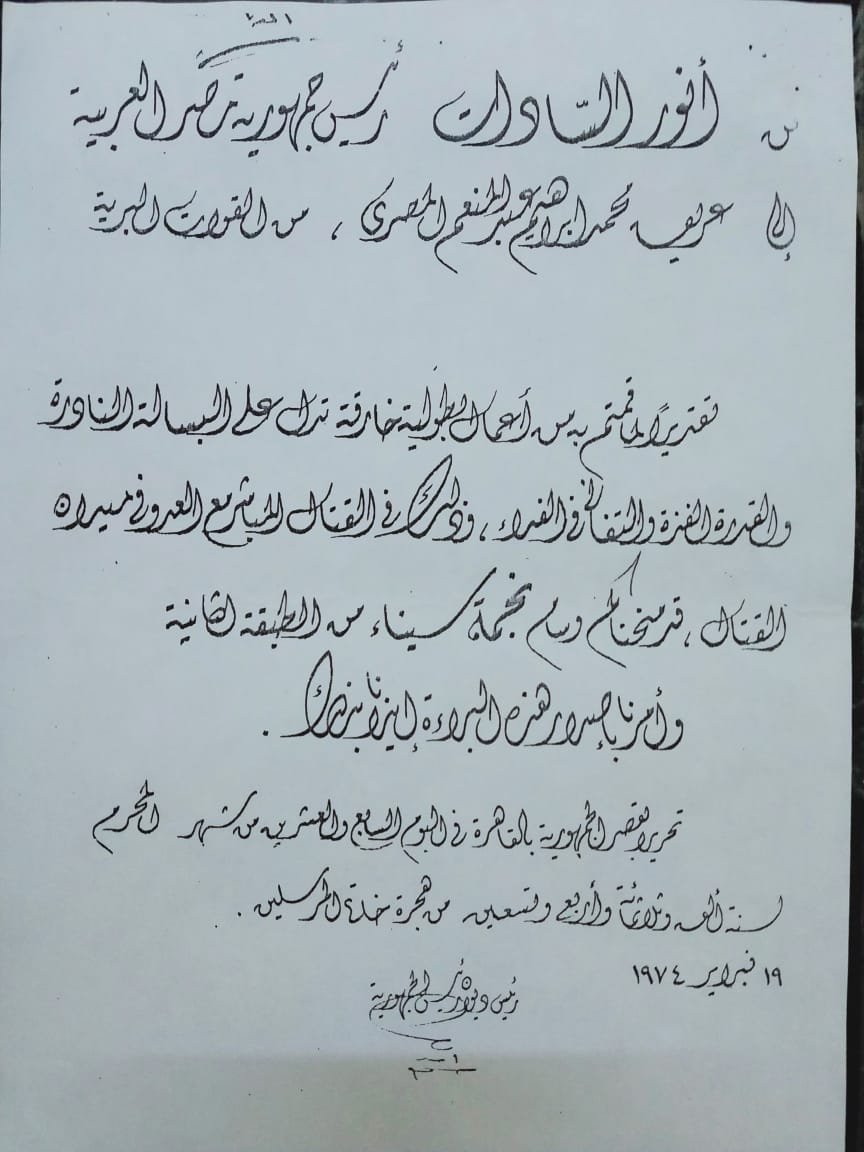 من أنور السادات رئيس جمهورية مصر العربية
إلى عريف محمد ابراهيم عبد المنعم المصرى ، من القوات البرية
تقديرًا لما قمتم به من أعمال بطولية خارقة تدل على البسالة النادرة
والقدرة الفذة والتفانى فى الفداء ، وذلك فى القتال المباشر مع العدو فى ميدان
القتال ، قد منحناكم وسام نجمة سيناء من الطبقة الثانية
وأمرنا بإصدار هذه البراءة إيذانا بذلك .
تحريرا بقصر الجمهورية بالقاهرة فى اليوم السابع والعشرين من شهر المحرم
لسنة ألف وثلاثمائة وأربع وتسعين من هجرة خاتم المرسلين .
١٩ فبراير ١٩٧٤
رئيس ديوان رئيس الجمهورية